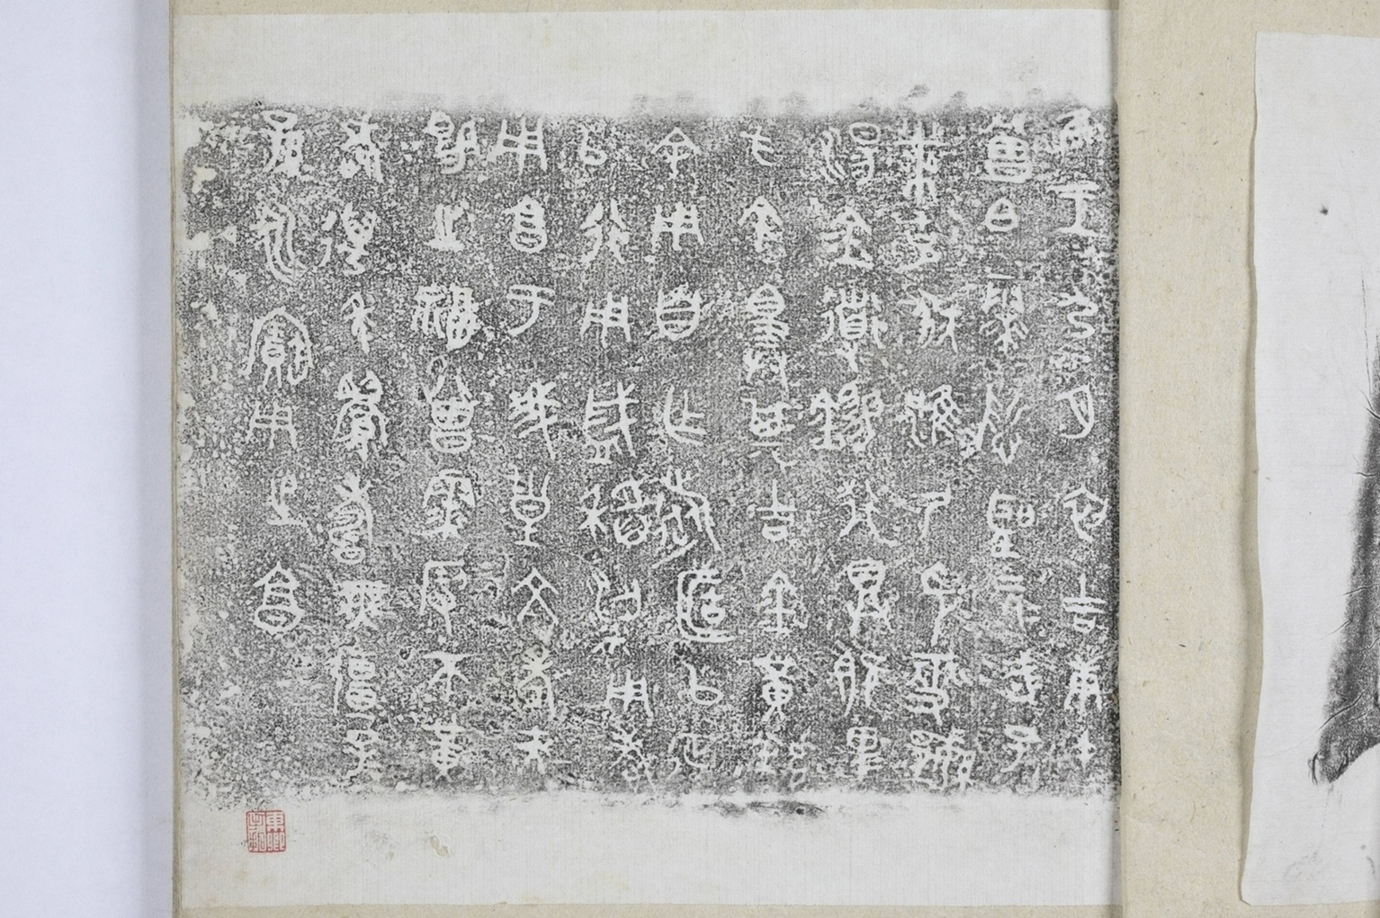 隹王九月初吉庚午
曾白霥哲聖元武
孔黹克狄淮夷印燮繁
湯金道錫行具既卑
方余擇其吉金黃鑪
余用自乍旅匡以征
以行用盛稻粱用孝
用享于我皇文考天
賜之福曾霥叚不黃
耇萬年眉壽無疆子
孫永寶用之享